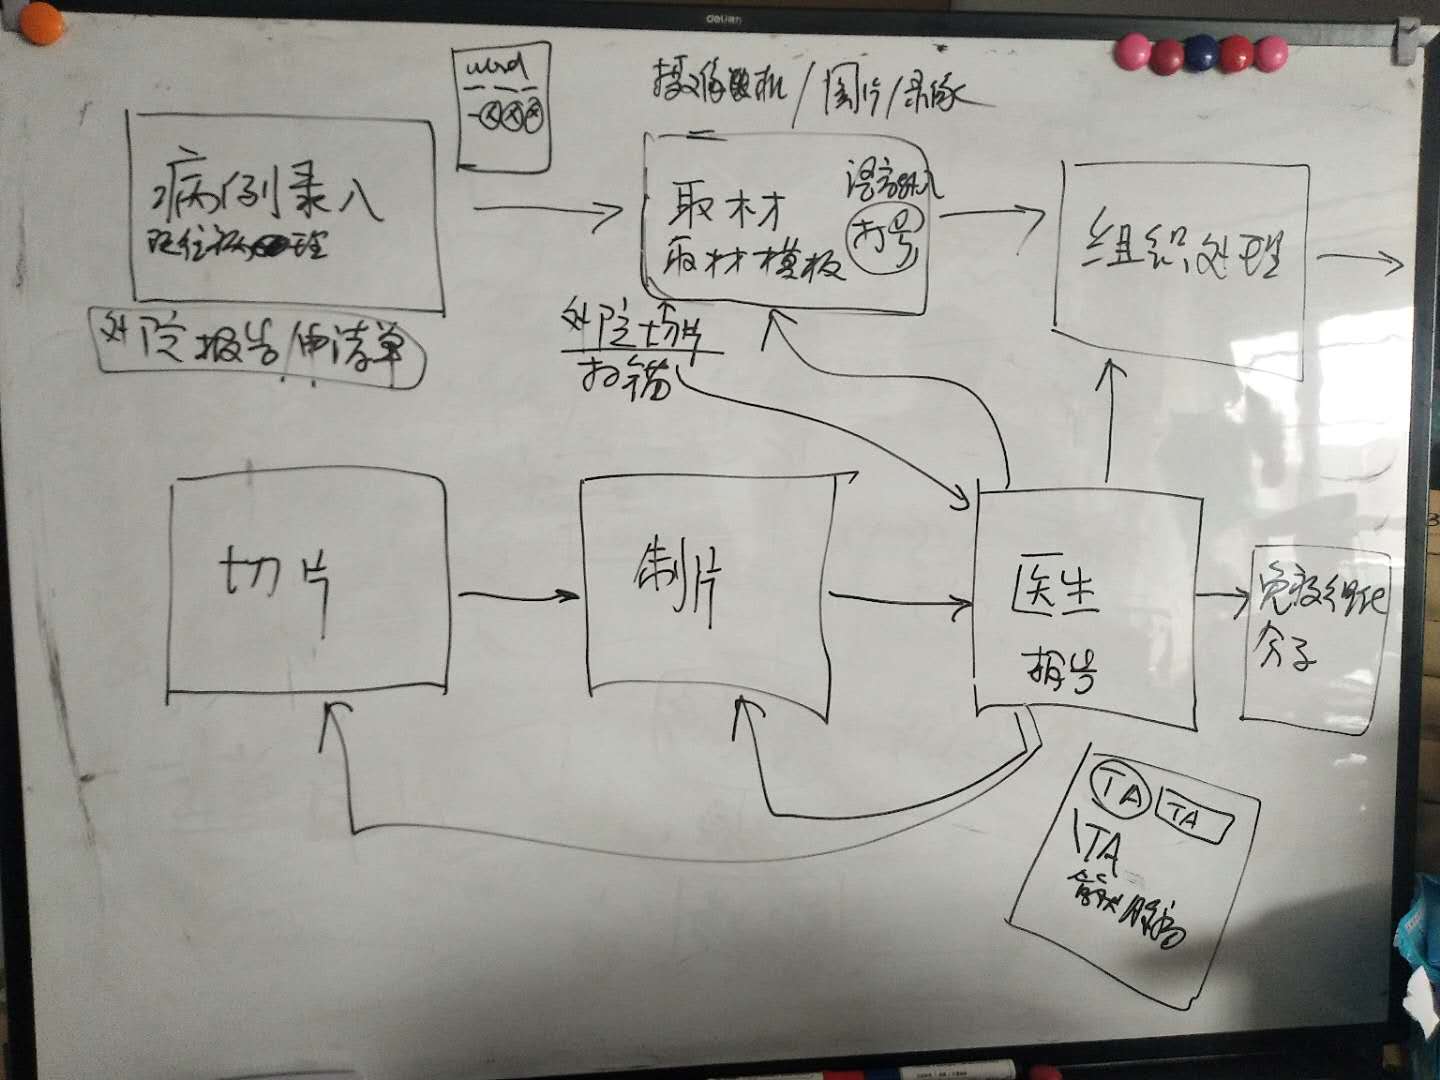 deli
word
摄像 / 图片 / 录像
病例录入
既往病理
外院报告/申请单
取材
取材模板
语音输入
打号
组织处理
外院切片
扫描
切片
制片
医生
报告
免疫组化
分子
TA
TA
TA